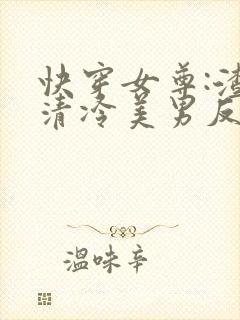 快穿女尊:渣
清冷美男反
温味辛